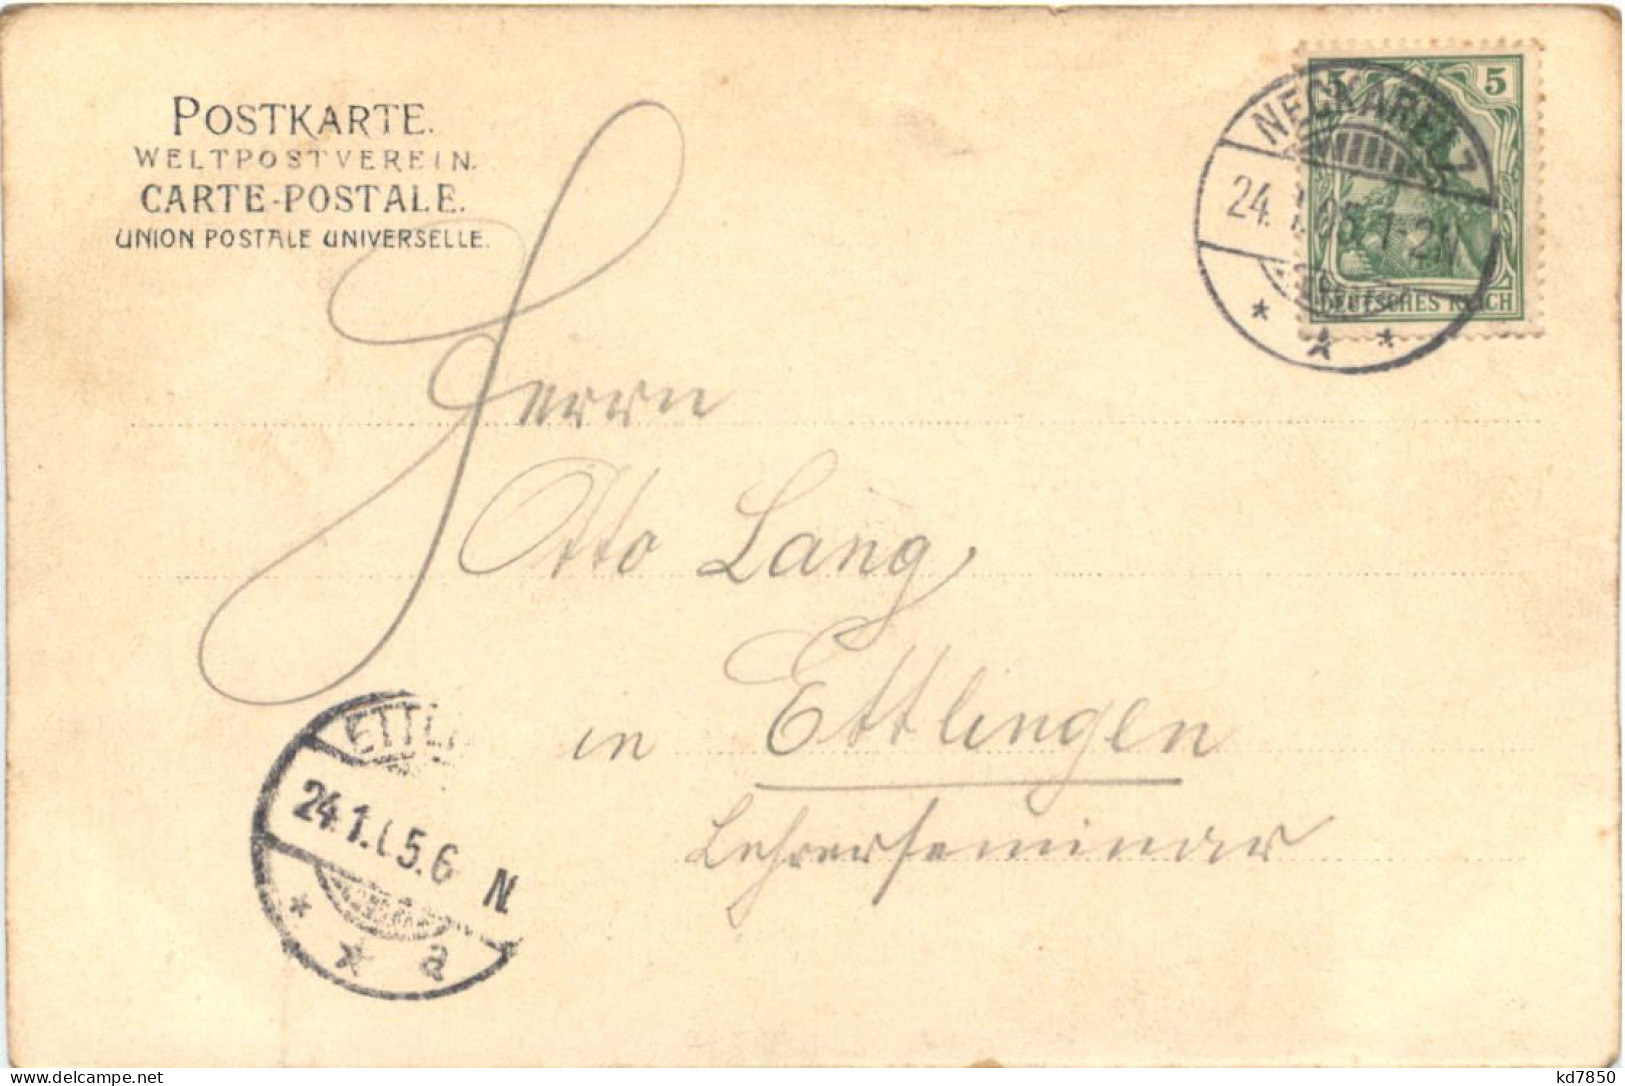 POSTKARTE.
WELTPOSTVEREIN.
CARTE-POSTALE.
UNION POSTALE UNIVERSELLE.
5 5
NECKARELZ
24.1.05.1-2N
DEUTSCHES REICH
* A *
Herrn
Otto Lang,
in Ettlingen
Lehrerseminar
ETTLI
24.1.05.6 N.
* * a
delcampe.net
kd7850